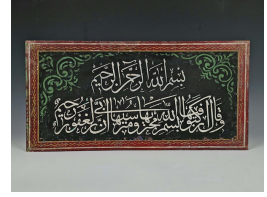 بسم الله الرحمن الرحيم
وقال اركبوا فيها بسم الله مجريها ومرسيها إن ربي لغفور رحيم